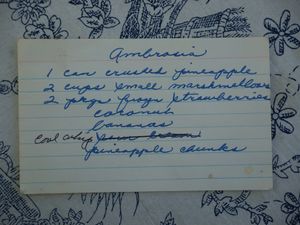 Ambrosia
1 can crushed pineapple
2 cups small marshmellows
2 pkgs frozn strawberries
coconut
bananas
Cool Whip sour cream
pineapple chunks